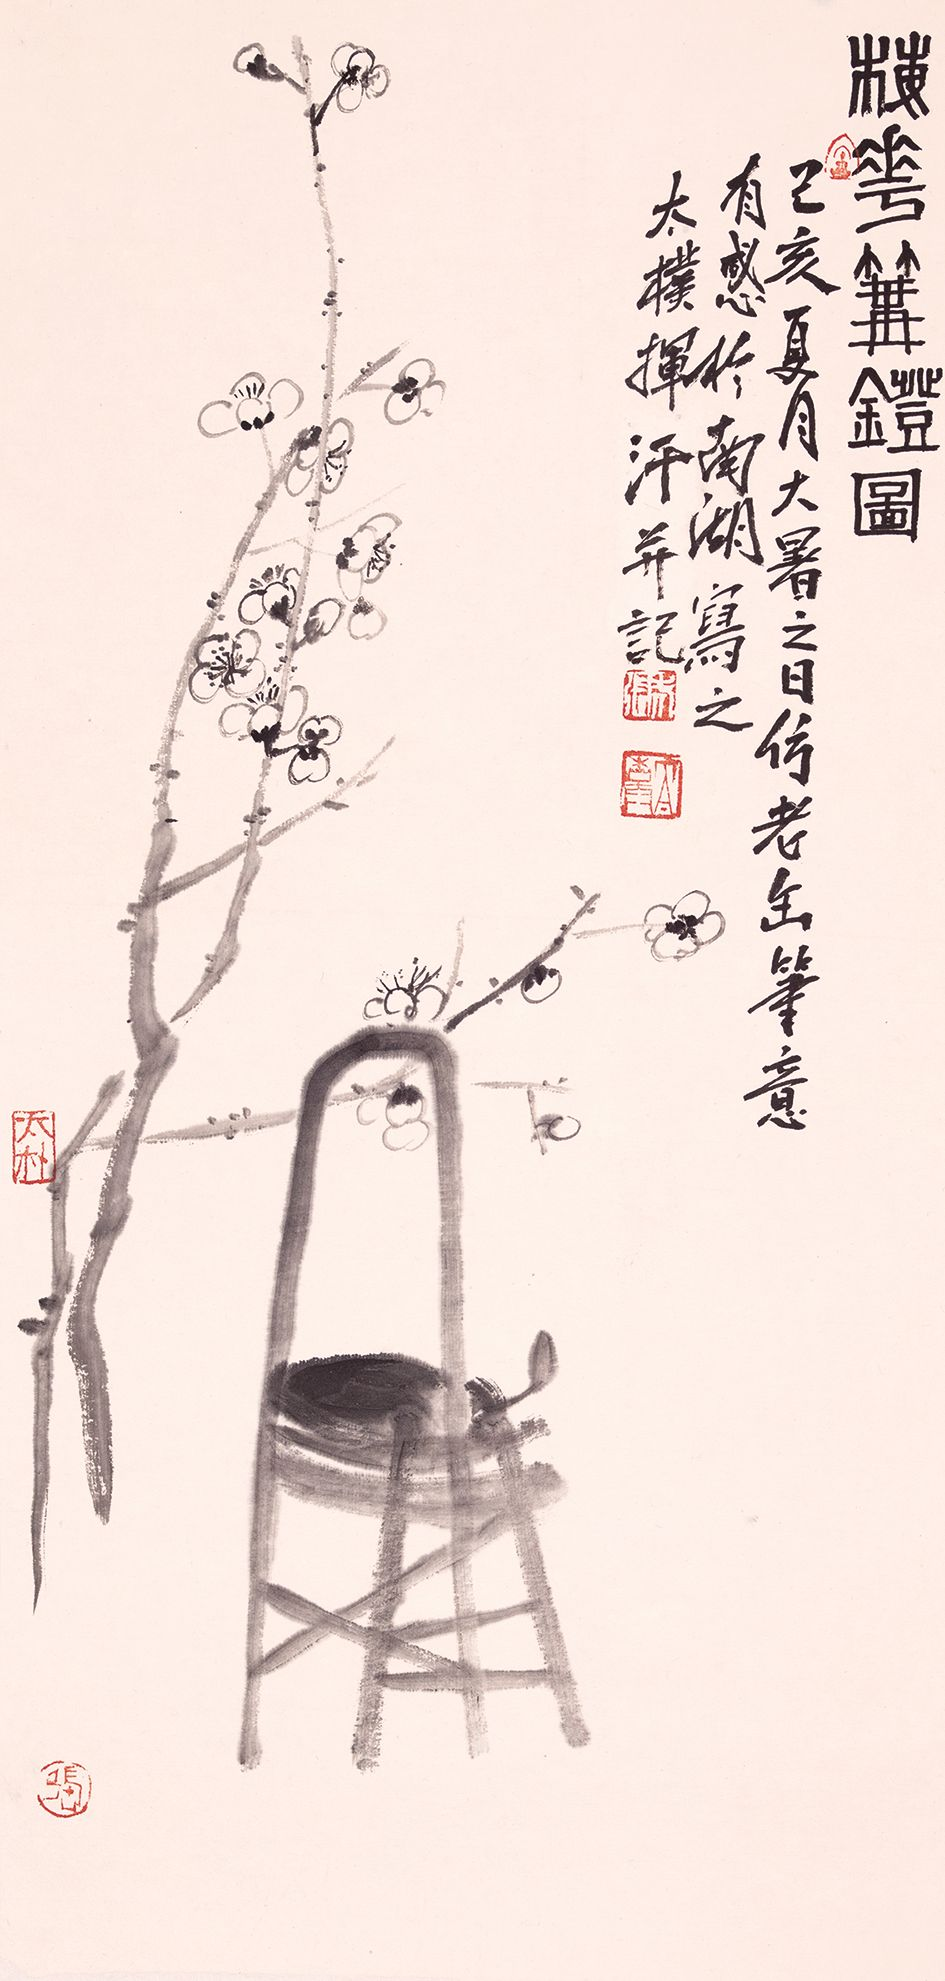 梅華篝鐙圖
己亥夏月大暑之日仿老缶筆意
有感於南湖寫之
太樸揮汗并記
太朴